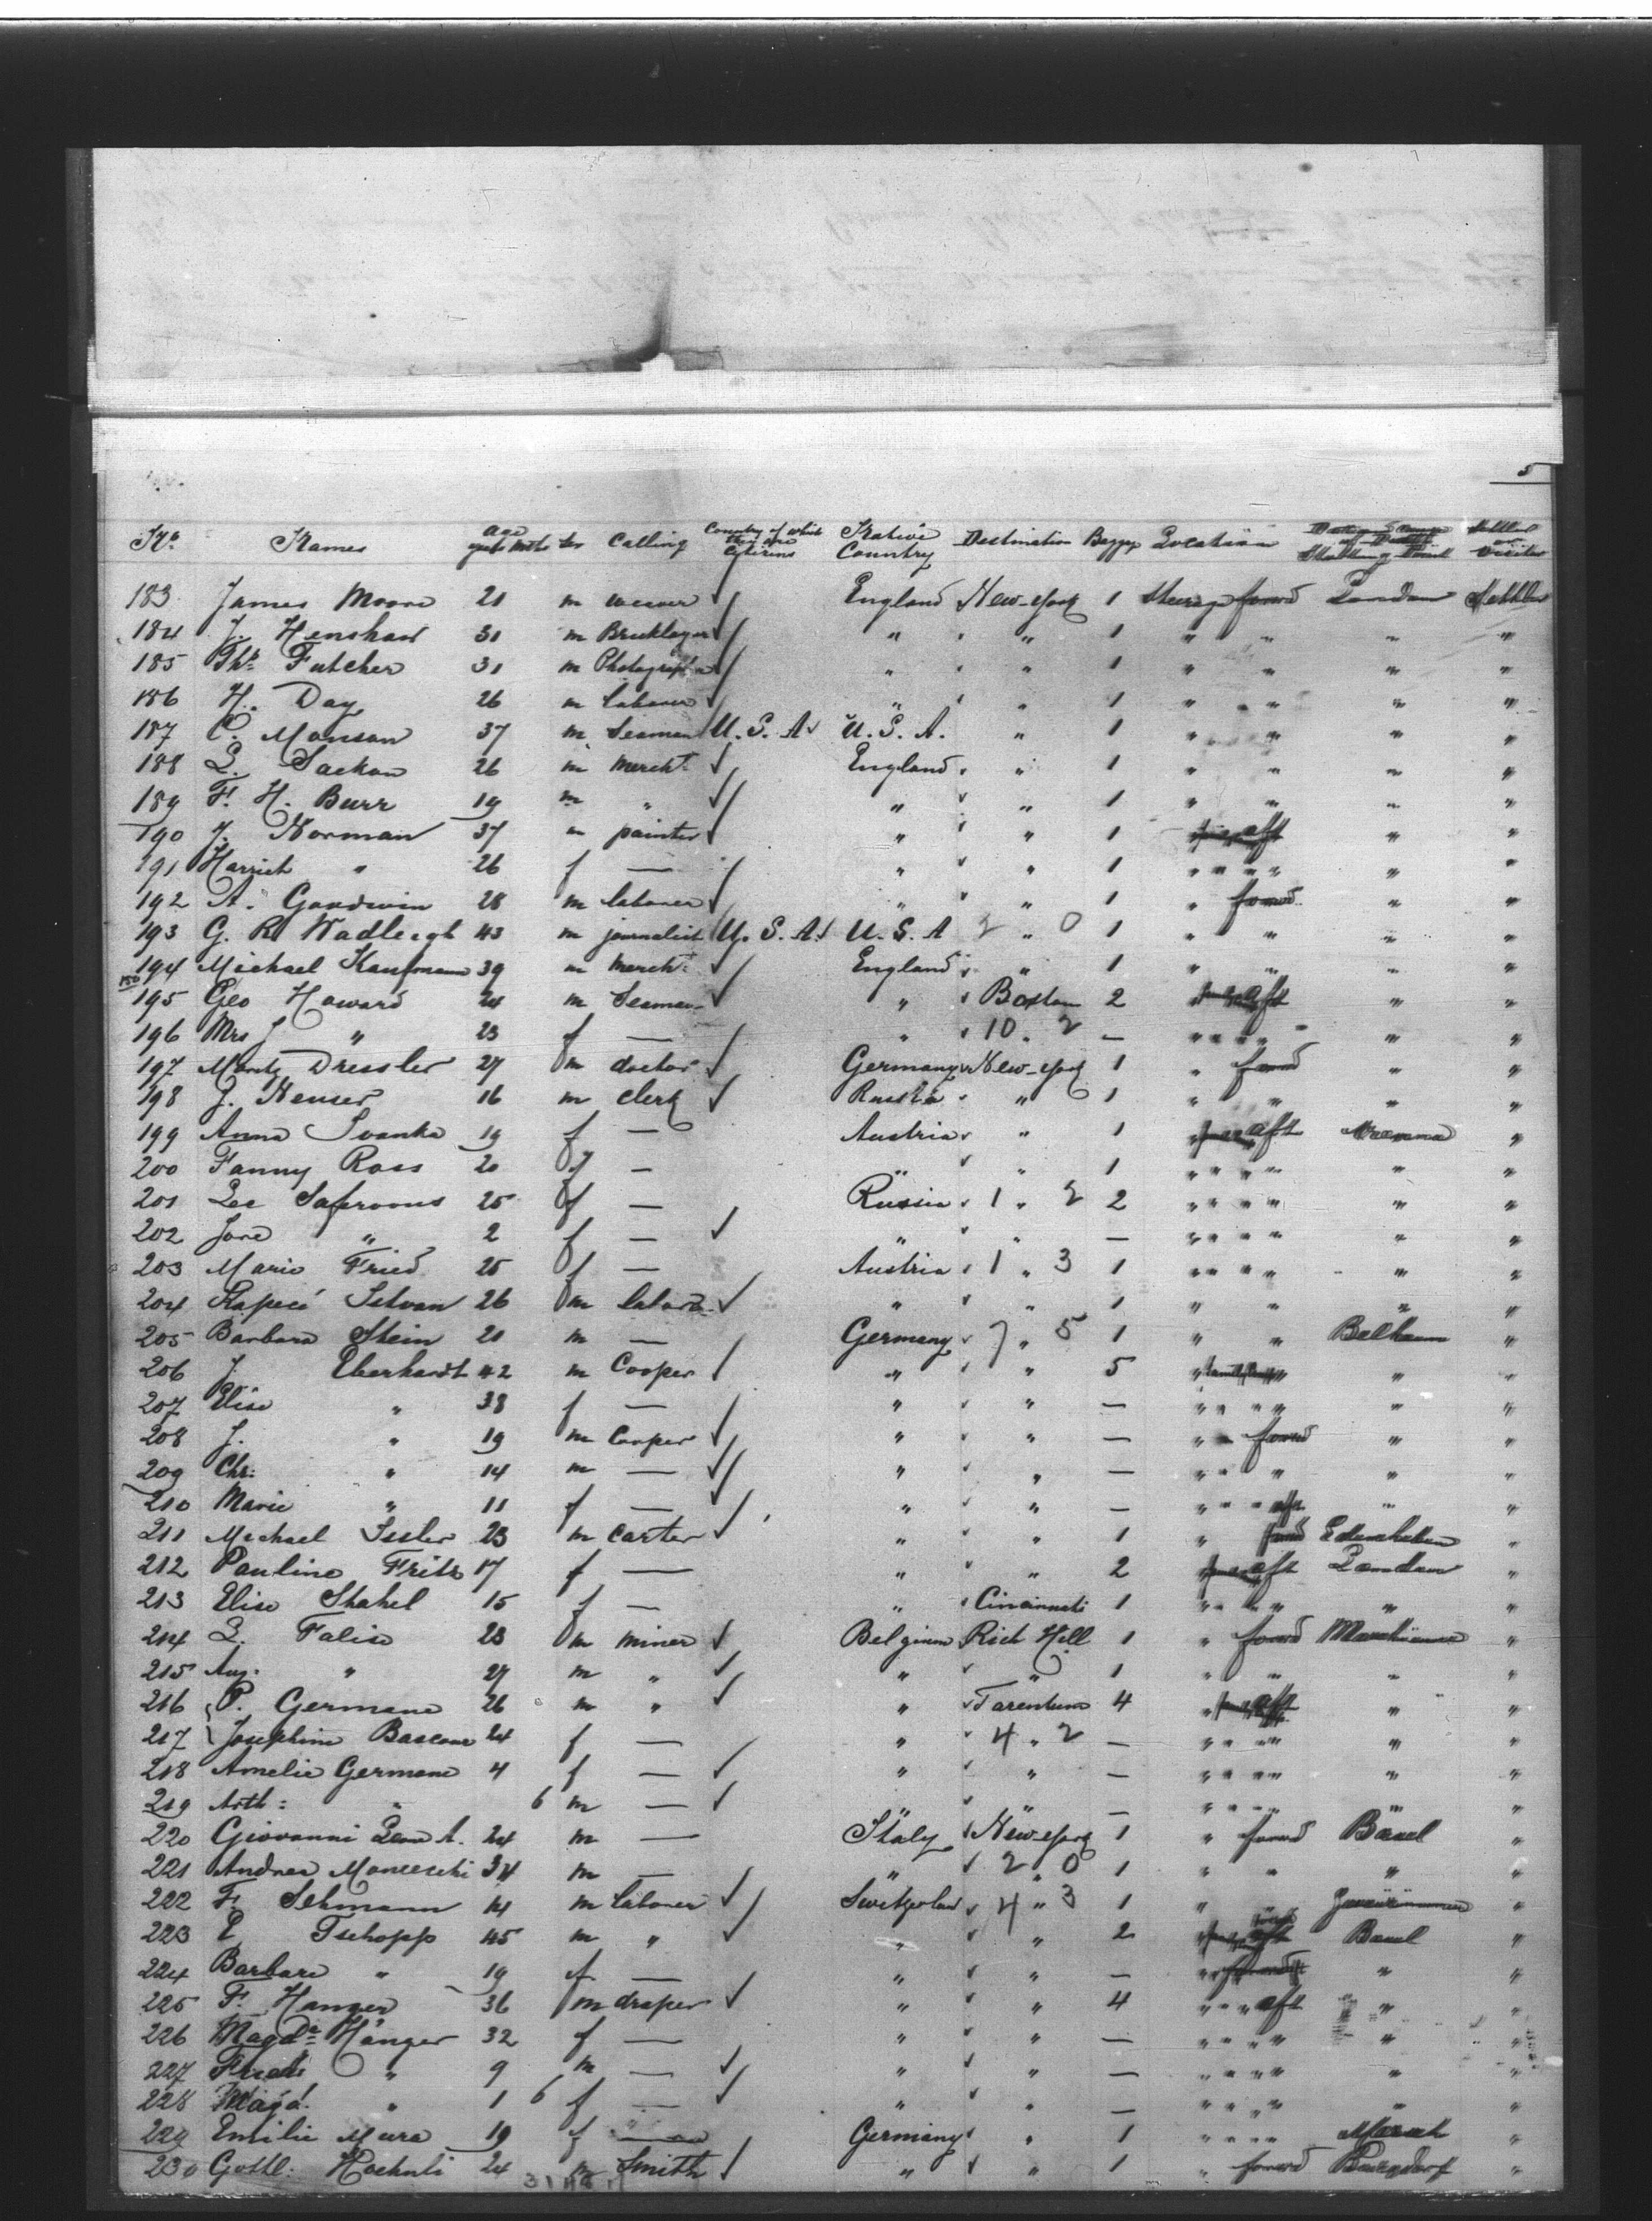 5
No. Names Age Sex Calling Country of which they are Citizens Native Country Destination Baggage Location
183 James Moore 21 m weaver ✓ England New-York 1 Steerage forwd London Settler
184 J. Henshaw 31 m Bricklayer ✓ " " 1 " " " "
185 Thos. Futcher 31 m Photographer ✓ " " 1 " " " "
186 H. Day 26 m laborer ✓ " " 1 " " " "
187 C. Monson 37 m Seaman U.S.A. U.S.A. " 1 " " " "
188 L. Sackon 26 m Mercht ✓ England " 1 " " " "
189 F. H. Burr 19 m " ✓ " " 1 " " " "
190 J. Norman 37 m painter ✓ " " 1 aft " "
191 Harriet " 26 f — " " 1 " " " "
192 A. Goodwin 28 m laborer ✓ " " 1 " forwd " "
193 G. R. Wadleigh 43 m journalist U.S.A. U.S.A 2 " 0 1 " " " "
194 Michael Kaufmann 39 m Mercht ✓ England " 1 " " " "
195 Geo Howard 24 m Seaman ✓ " Boston 2 aft " "
196 Mrs J " 23 f — " 10 " 2 — " " " "
197 Moritz Dressler 27 m doctor ✓ Germany New-York 1 " forwd " "
198 J. Neuser 16 m clerk ✓ Russia " 1 " " " "
199 Anna Ivanka 19 f — Austria " 1 aft "
200 Fanny Ross 20 f — " " 1 " " " "
201 Lee 25 f — Russia 1 " 2 2 " " " "
202 " 2 f — ✓ " " — " " " "
203 Marie Fried 25 f — Austria 1 " 3 1 " " " "
204 Istvan 26 m labor ✓ " " 1 " " " "
205 Barbara Stein 21 m — Germany 7 " 5 1 " " "
206 J. Eberhardt 42 m Cooper ✓ " " 5 " " "
207 Elise " 38 f — " " — " " " "
208 J. " 19 m Cooper ✓ " " — " forwd " "
209 Chr: " 14 m — ✓ " " — " " " "
210 Marie " 11 f — ✓ " " — " aft " "
211 Michael Issler 23 m carter ✓ " " 1 " forwd "
212 Pauline Fritz 17 f — " " 2 aft "
213 Elise Stahel 15 f — " Cincinnati 1 " " " "
214 L. Falise 23 m miner ✓ Belgium Rich Hill 1 " forwd "
215 Aug. " 27 m " ✓ " " 1 " " " "
216 P. Germane 26 m " ✓ " Tarentum 4 " aft " "
217 Josephine 24 f — " 4 " 2 — " " " "
218 Amelie Germane 4 f — ✓ " " — " " " "
219 Arth: " 6 m — ✓ " " — " " " "
220 Giovanni Leon A. 24 m — Italy New-York 1 " forwd Basel "
221 Andrea 34 m — " 2 " 0 1 " " " "
222 F. Sehmann 14 m laborer ✓ Switzerland 4 " 3 1 " "
223 E Tschopp 45 m " ✓ " " 2 Basel "
224 Barbara " 19 f — " " — " "
225 F. Hanger 36 m draper ✓ " " 4 " " " aft " "
226 Magda Hänger 32 f — " " — " " " "
227 " 9 m — ✓ " " — " " " "
228 Magd. " 1 6 f — ✓ " " — " " " "
229 Emilie Mura 19 f — Germany " 1 " " "
230 Gottl: 24 m Smith ✓ " " 1 " forwd Burgdorf "